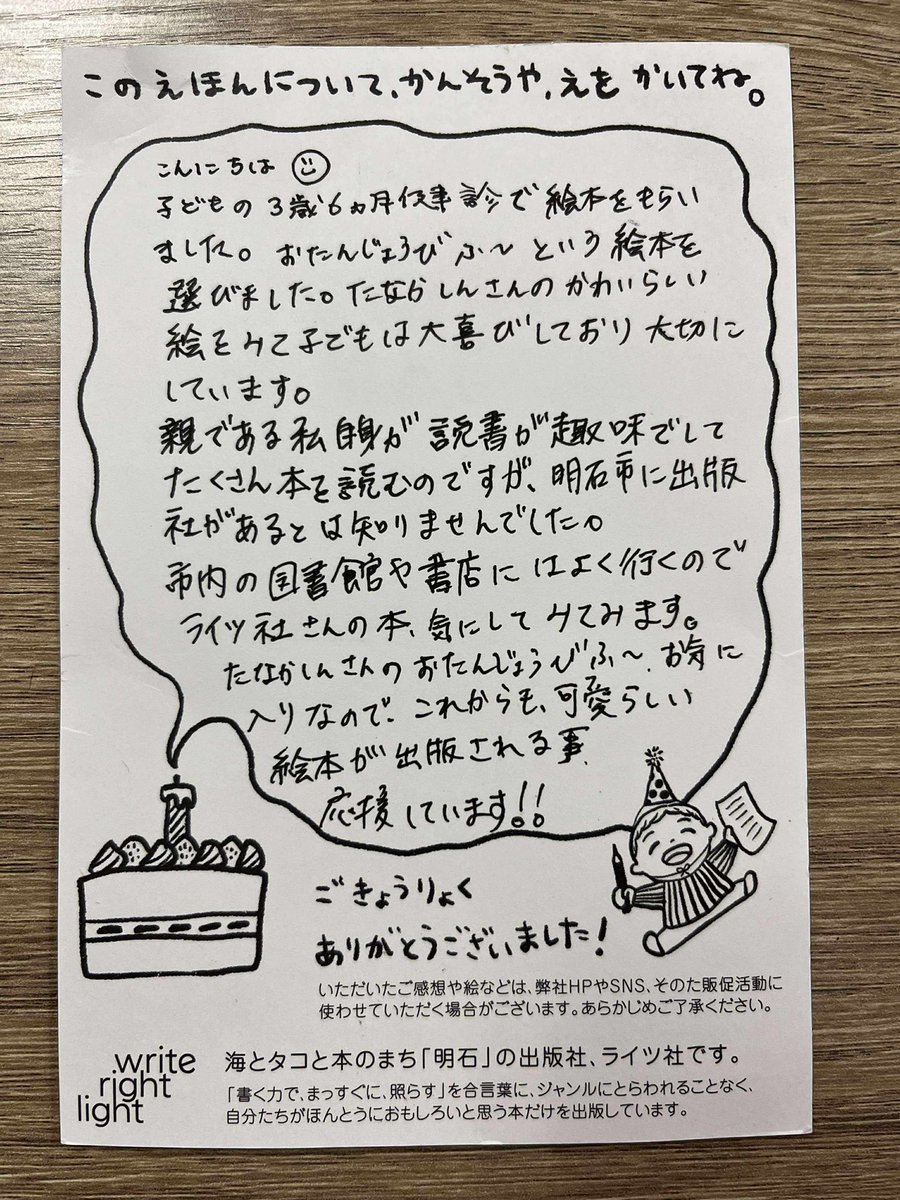 このえほんについて、かんそうや、えを かいてね。
こんにちは
子どもの3歳6ヵ月健診で絵本をもらい
ました。おたんじょうびふ〜という絵本を
選びました。たなかしんさんのかわいらしい
絵をみて子どもは大喜びしており大切に
しています。
親である私自身が読書が趣味でして
たくさん本を読むのですが、明石市に出版
社があるとは知りませんでした。
市内の図書館や書店にはよく行くので
ライツ社さんの本、気にしてみてみます。
たなかしんさんのおたんじょうびふ〜、お気に
入りなので、これからも、可愛らしい
絵本が出版される事、
応援しています!!
ごきょうりょく
ありがとうございました!
いただいたご感想や絵などは、弊社HPやSNS、そのた販促活動に
使わせていただく場合がございます。あらかじめご了承ください。
write
right
light
海とタコと本のまち「明石」の出版社、ライツ社です。
「書く力で、まっすぐに、照らす」を合言葉に、ジャンルにとらわれることなく、
自分たちがほんとうにおもしろいと思う本だけを出版しています。